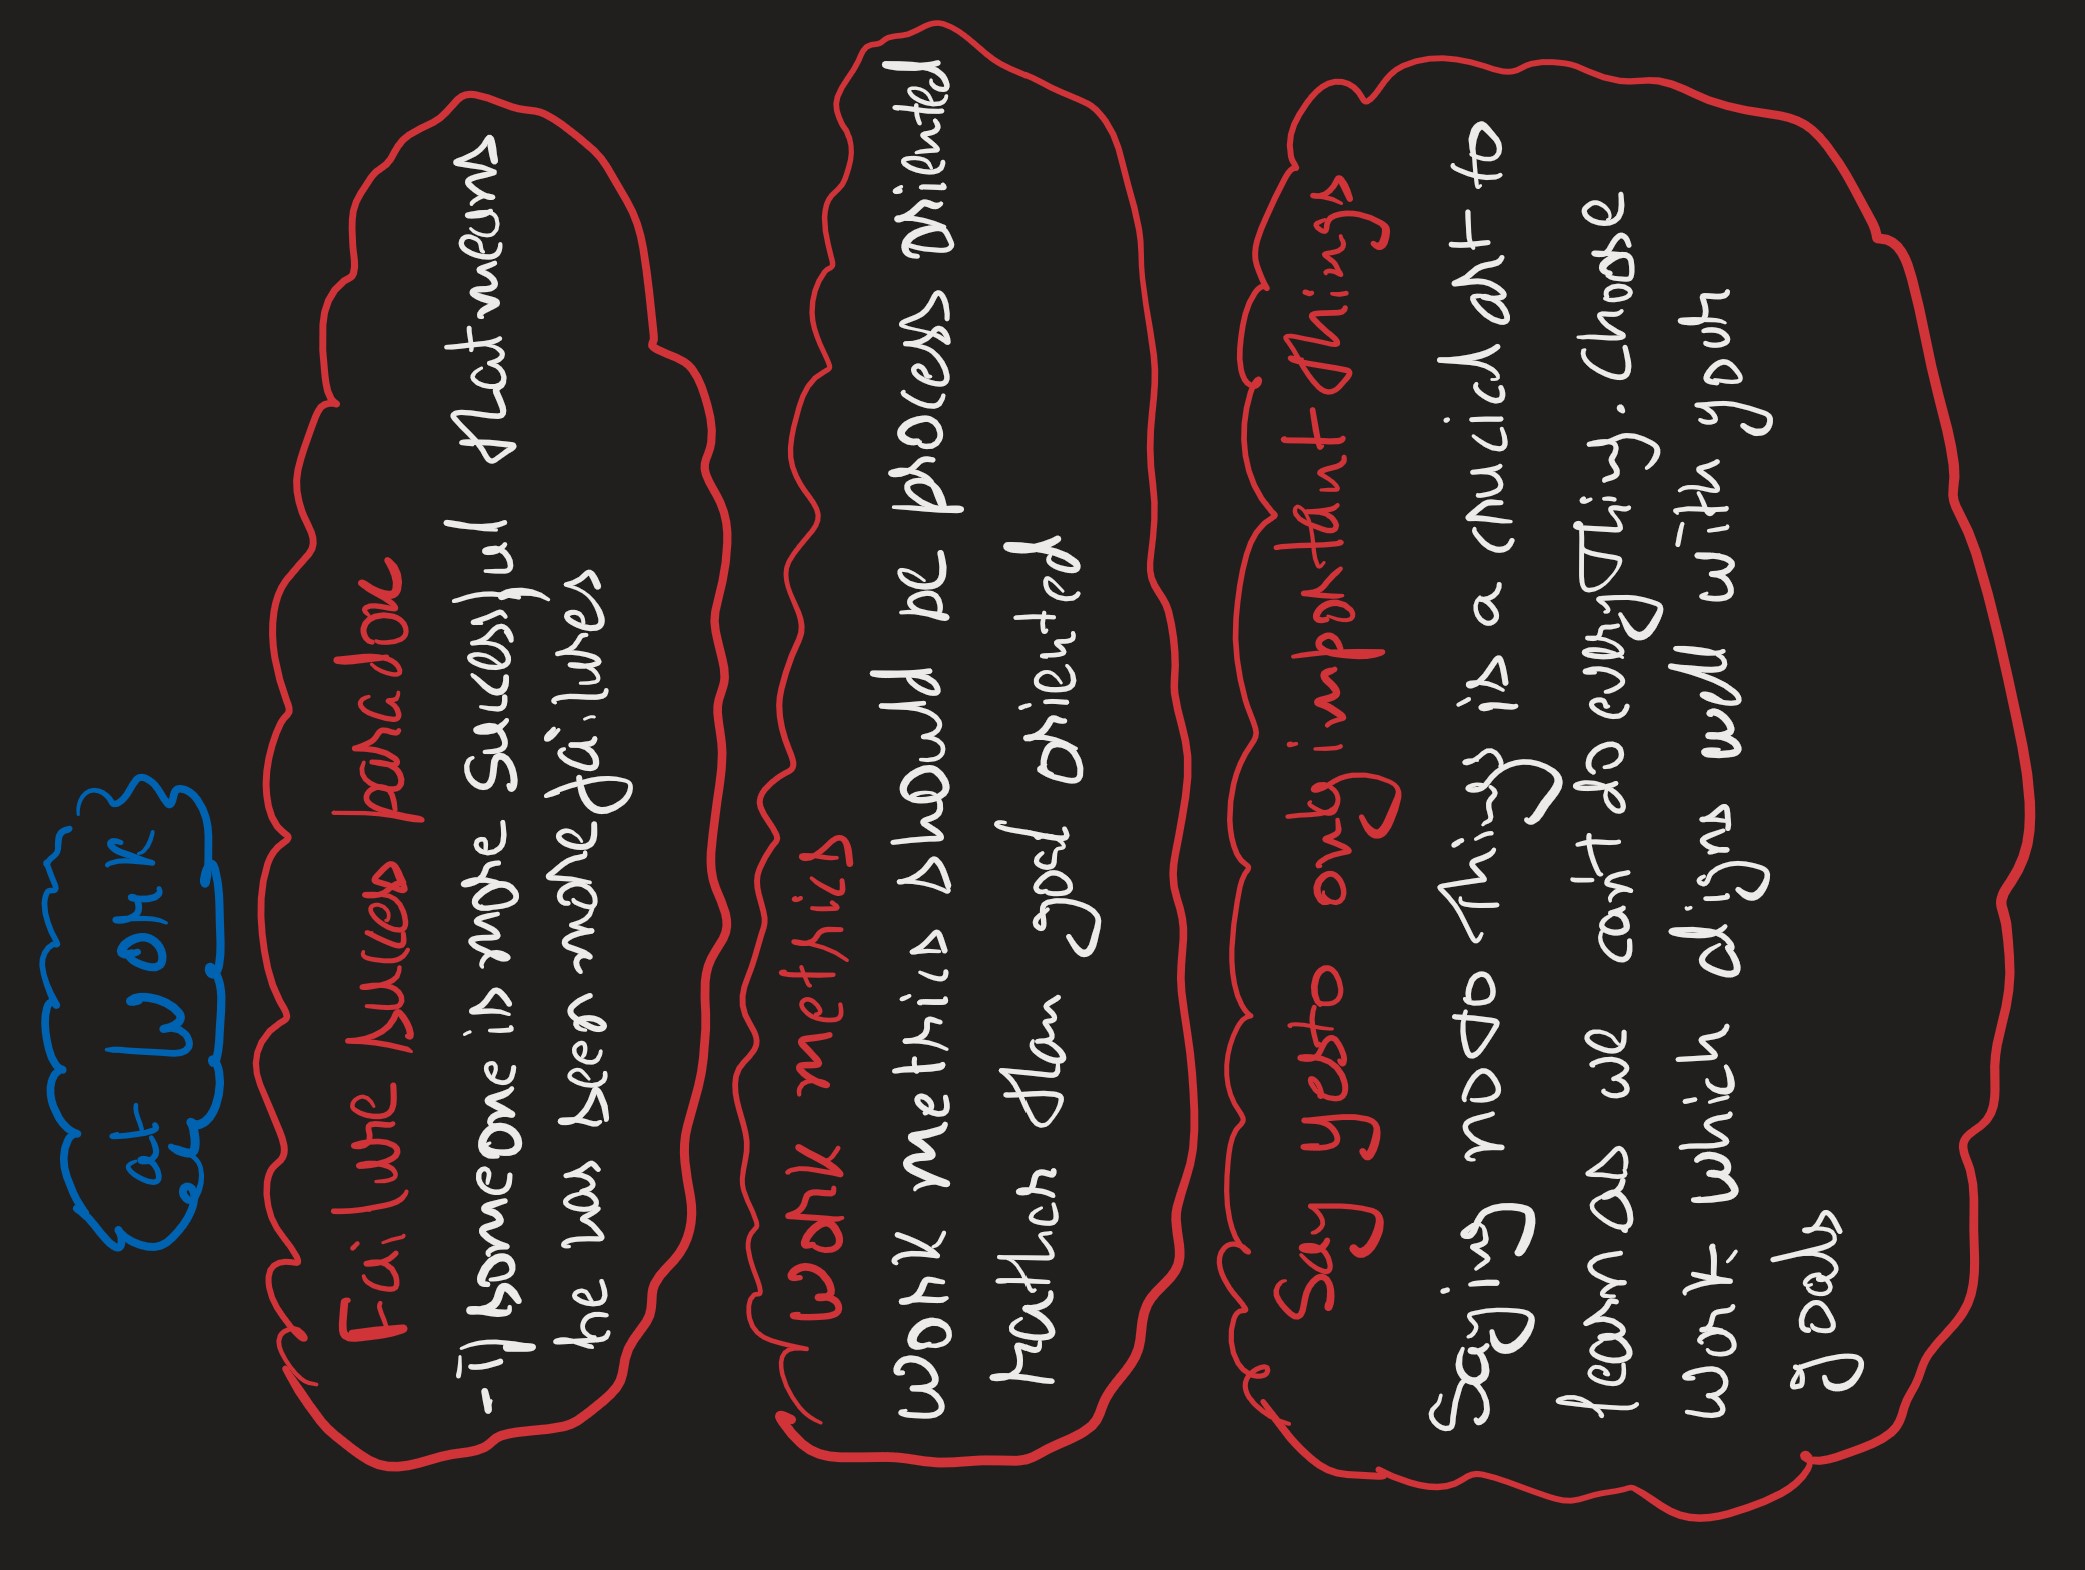 at work
Failure success paradox
- if someone is more Sucessful that means
he has seen more failures
work metrics
work metrics should be process oriented
rather than goal oriented
Say yes to only important things
Saying no to things is a crucial art to
learn as we can't do every thing. Choose
work which aligns well with your
goals